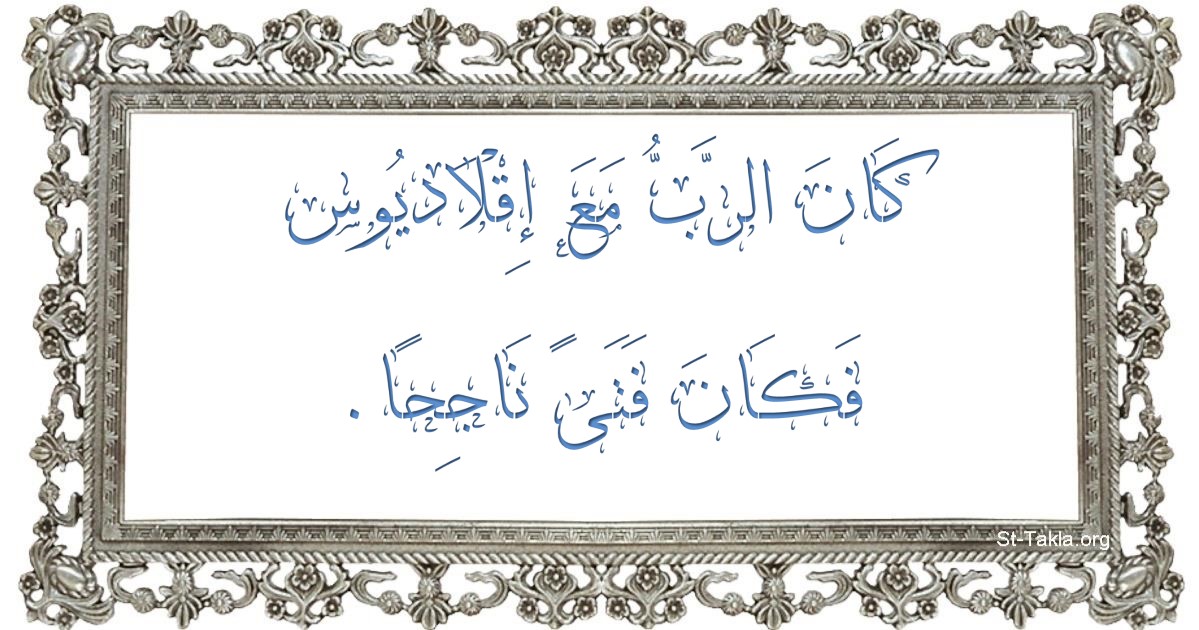 كَانَ الرَّبُّ مَعَ إِقْلَاديُوس
فَكَانَ فَتَىً نَاجِحًا .
St-Takla.org